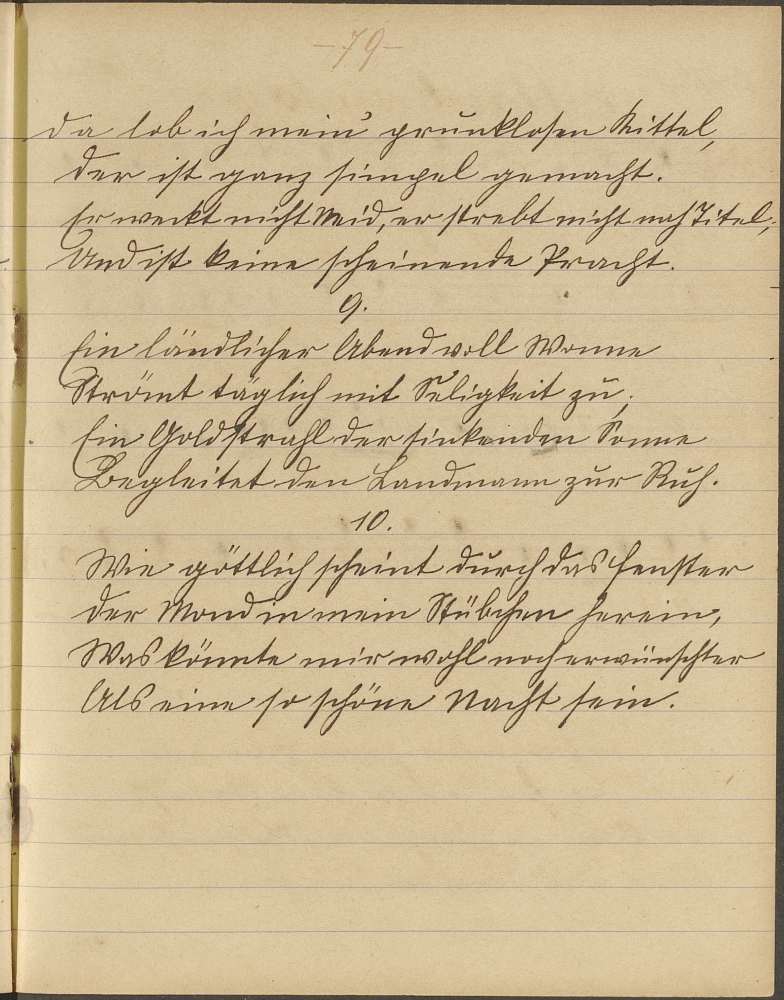 -79-
Da lob ich mein' prunklosen Kittel,
Der ist ganz simpel gemacht.
Er weckt nicht Neid, er strebt nicht nach Titel,
Und ist keine scheinende Pracht.
9.
Ein ländlicher Abend voll Wonne
Strömt täglich mit Seligkeit zu,
Ein Goldstrahl der sinkenden Sonne
Begleitet den Landmann zur Ruh.
10.
Wie göttlich scheint durch das Fenster
Der Mond in mein Stübchen herein,
Was könnte mir wohl noch erwünschter
Als eine so schöne Nacht sein.